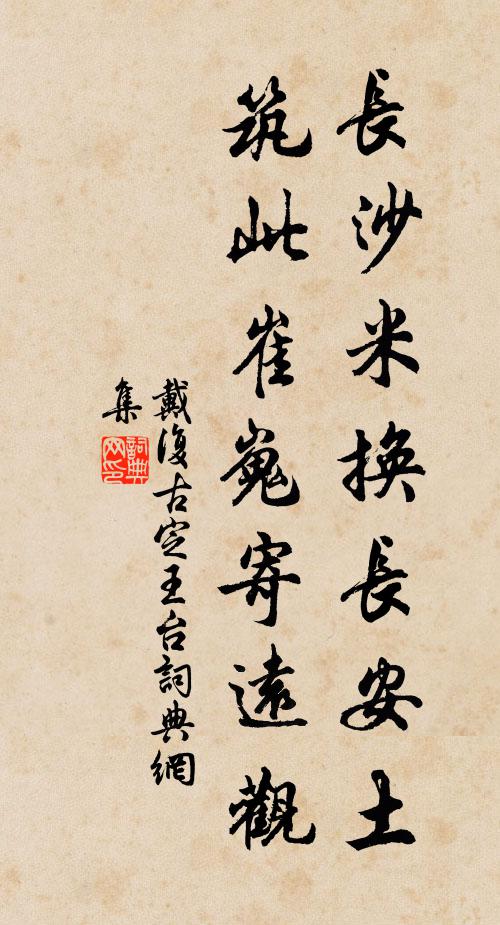 長沙米換長安土
筑此崔嵬寄遠觀
戴復古定王台詞典網
集
詞典
网印